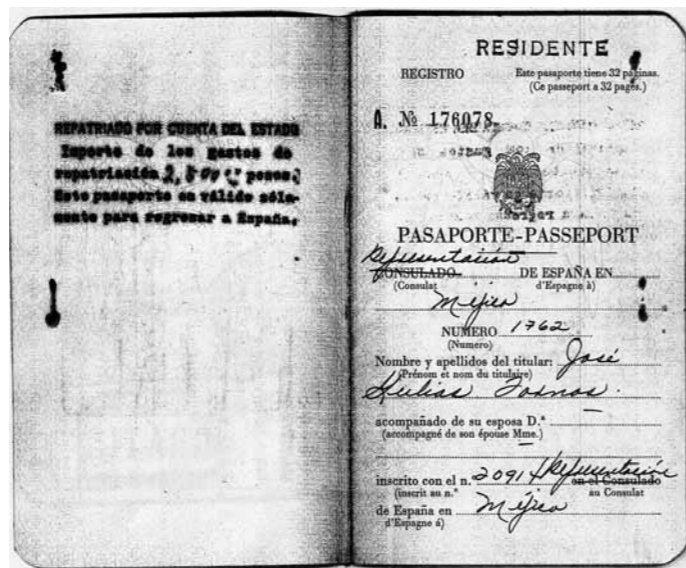 REPATRIADO POR CUENTA DEL ESTADO
Importe de los gastos de
repatriación pesos.
Este pasaporte es válido sóla-
mente para regresar a España.
RESIDENTE
REGISTRO
Este pasaporte tiene 32 páginas.
(Ce passeport a 32 pages.)
A. № 176078
PASAPORTE-PASSEPORT
Representación
CONSULADO DE ESPAÑA EN
(Consulat d'Espagne à)
Méjico
NUMERO 1762
(Numero)
Nombre y apellidos del titular: José
(Prénom et nom du titulaire)
acompañado de su esposa D.ª
(accompagné de son épouse Mme.)
inscrito con el n.º 2091 Representación en el Consulado
(inscrit au n.º au Consulat
de España en Méjico
d'Espagne á)